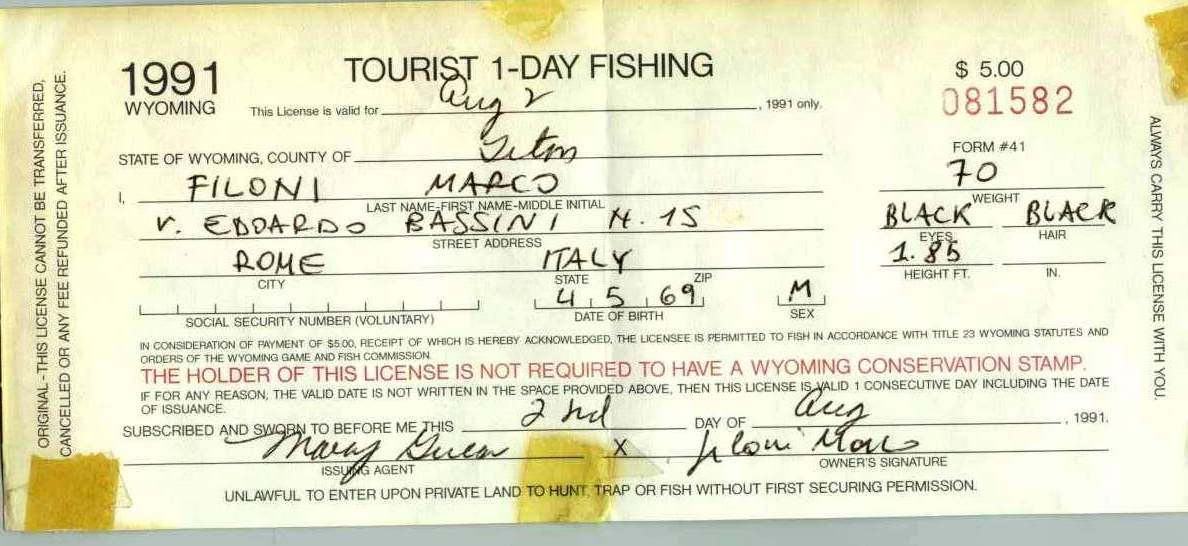 1991
WYOMING
TOURIST 1-DAY FISHING
$ 5.00
081582
This License is valid for Aug 2, 1991 only.
FORM #41
STATE OF WYOMING, COUNTY OF Teton
70
WEIGHT
I, FILONI MARCO
LAST NAME-FIRST NAME-MIDDLE INITIAL
BLACK BLACK
EYES HAIR
V. EDOARDO BASSINI N. 15
STREET ADDRESS
1.85
HEIGHT FT. IN.
ROME ITALY
CITY STATE ZIP
4 5 69 M
SOCIAL SECURITY NUMBER (VOLUNTARY) DATE OF BIRTH SEX
IN CONSIDERATION OF PAYMENT OF $5.00, RECEIPT OF WHICH IS HEREBY ACKNOWLEDGED, THE LICENSEE IS PERMITTED TO FISH IN ACCORDANCE WITH TITLE 23 WYOMING STATUTES AND
ORDERS OF THE WYOMING GAME AND FISH COMMISSION.
THE HOLDER OF THIS LICENSE IS NOT REQUIRED TO HAVE A WYOMING CONSERVATION STAMP.
IF FOR ANY REASON, THE VALID DATE IS NOT WRITTEN IN THE SPACE PROVIDED ABOVE, THEN THIS LICENSE IS VALID 1 CONSECUTIVE DAY INCLUDING THE DATE
OF ISSUANCE.
SUBSCRIBED AND SWORN TO BEFORE ME THIS 2nd DAY OF Aug, 1991.
Mary X Filoni Marco
ISSUING AGENT OWNER'S SIGNATURE
UNLAWFUL TO ENTER UPON PRIVATE LAND TO HUNT, TRAP OR FISH WITHOUT FIRST SECURING PERMISSION.
ORIGINAL-THIS LICENSE CANNOT BE TRANSFERRED,
CANCELLED OR ANY FEE REFUNDED AFTER ISSUANCE.
ALWAYS CARRY THIS LICENSE WITH YOU.